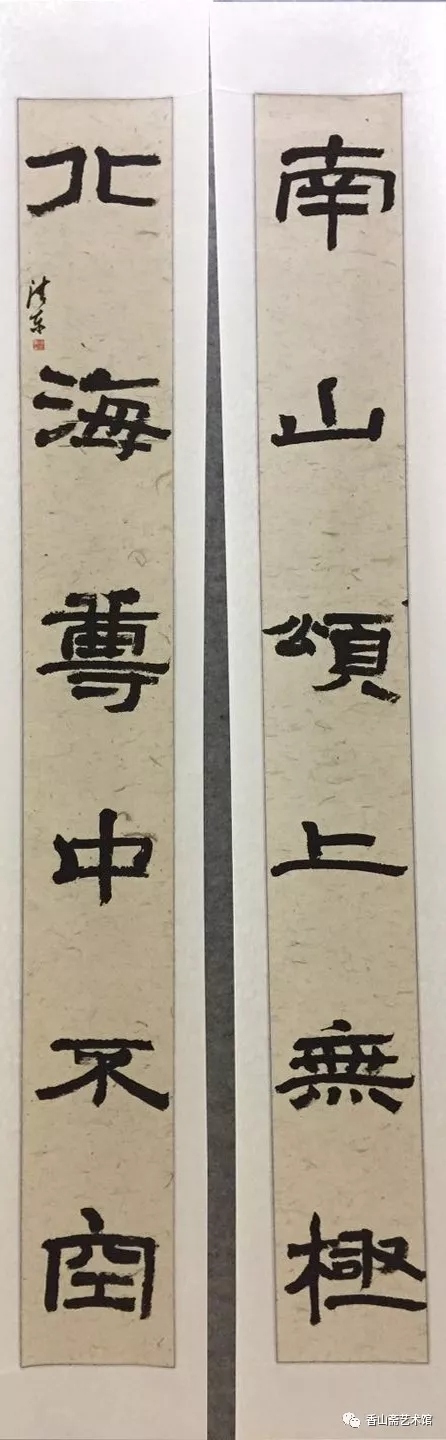 南山頌上無極
北海尊中不空
香山斋艺术馆